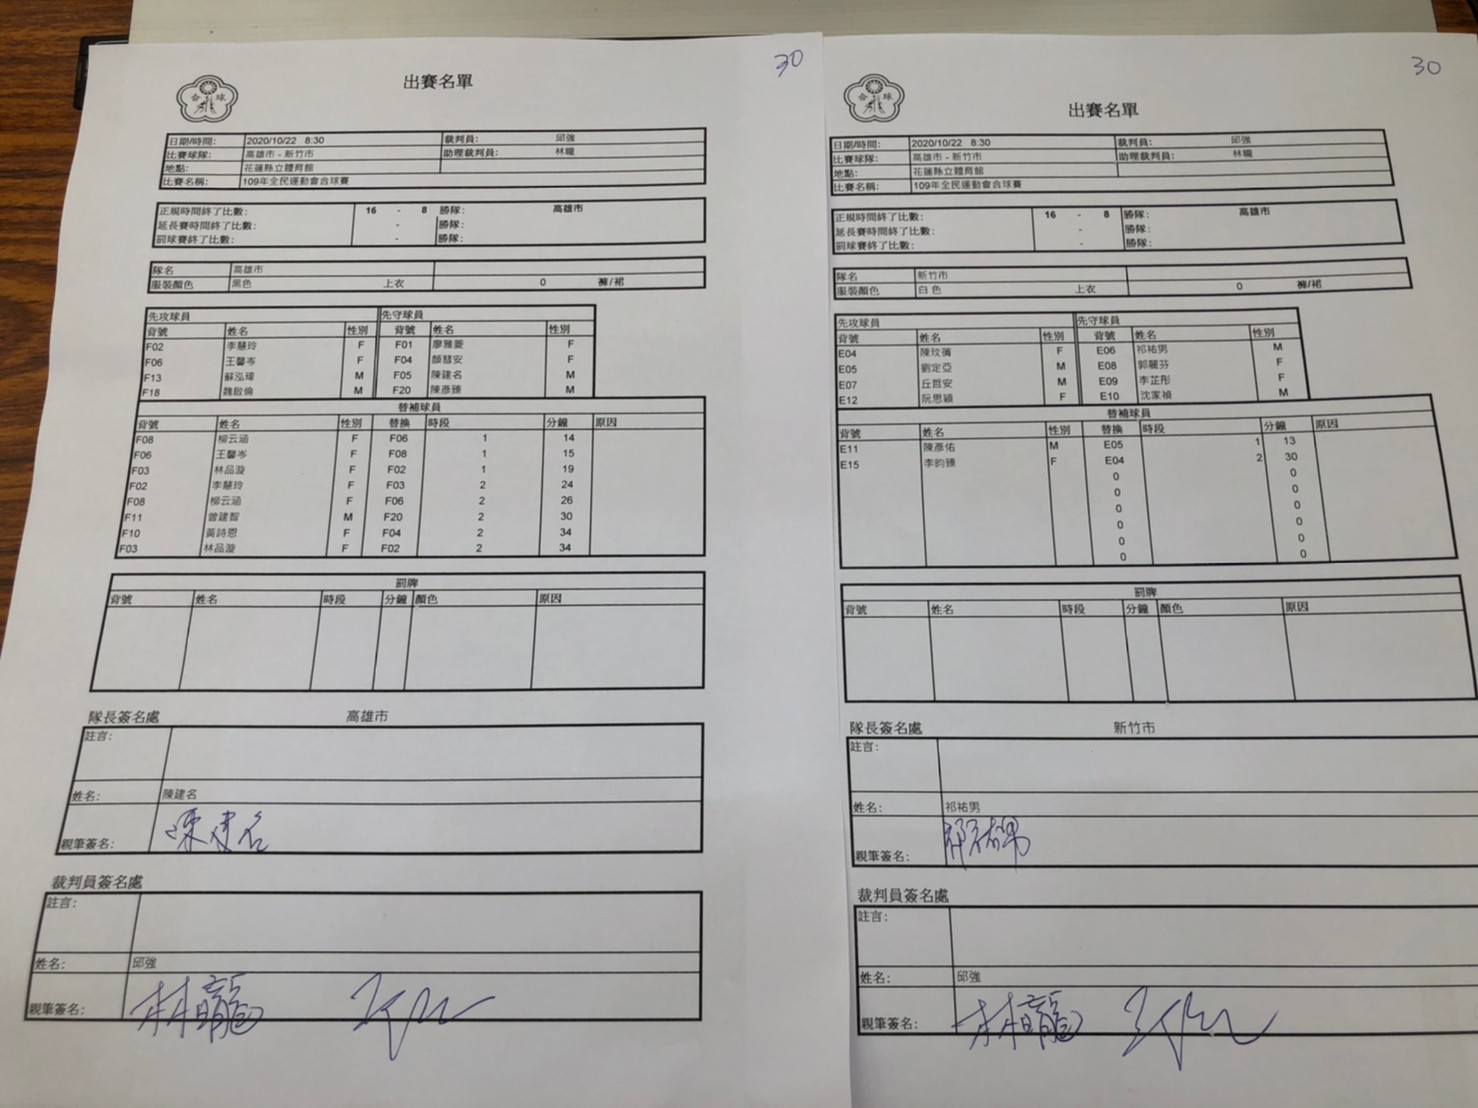 30
出賽名單
日期/時間: 2020/10/22 8:30 裁判員: 邱強
比賽球隊: 高雄市 - 新竹市 助理裁判員: 林曨
地點: 花蓮縣立體育館
比賽名稱: 109年全民運動會合球賽
正規時間終了比數: 16 - 8 勝隊: 高雄市
延長賽時間終了比數: - 勝隊:
罰球賽終了比數: - 勝隊:
隊名 高雄市
服裝顏色 黑色 上衣 0 褲/裙
先攻球員 先守球員
背號 姓名 性別 背號 姓名 性別
F02 李慧玲 F F01 廖雅菱 F
F06 王馨岑 F F04 顏彗安 F
F13 蘇泓瑋 M F05 陳建名 M
F18 魏啟倫 M F20 陳彥臻 M
替補球員
背號 姓名 性別 替換 時段 分鐘 原因
F08 柳云涵 F F06 1 14
F06 王馨岑 F F08 1 15
F03 林品漩 F F02 1 19
F02 李慧玲 F F03 2 24
F08 柳云涵 F F06 2 26
F11 曾建智 M F20 2 30
F10 黃詩恩 F F04 2 34
F03 林品漩 F F02 2 34
罰牌
背號 姓名 時段 分鐘 顏色 原因
隊長簽名處 高雄市
註言:
姓名: 陳建名
親筆簽名: 陳建名
裁判員簽名處
註言:
姓名: 邱強
親筆簽名: 林曨
30
合球
出賽名單
日期/時間: 2020/10/22 8:30 裁判員: 邱強
比賽球隊: 高雄市 - 新竹市 助理裁判員: 林曨
地點: 花蓮縣立體育館
比賽名稱: 109年全民運動會合球賽
正規時間終了比數: 16 - 8 勝隊: 高雄市
延長賽時間終了比數: - 勝隊:
罰球賽終了比數: - 勝隊:
隊名 新竹市
服裝顏色 白色 上衣 0 褲/裙
先攻球員 先守球員
背號 姓名 性別 背號 姓名 性別
E04 陳玟 F E06 祁祐男 M
E05 劉定亞 M E08 郭麗芬 F
E07 丘哲安 M E09 李芷彤 F
E12 阮思穎 F E10 沈家禎 M
替補球員
背號 姓名 性別 替換 時段 分鐘 原因
E11 陳彥佑 M E05 1 13
E15 李昀臻 F E04 2 30
0 0
0 0
0 0
0 0
0 0
0 0
罰牌
背號 姓名 時段 分鐘 顏色 原因
隊長簽名處 新竹市
註言:
姓名: 祁祐男
親筆簽名: 祁祐男
裁判員簽名處
註言:
姓名: 邱強
親筆簽名: 林曨